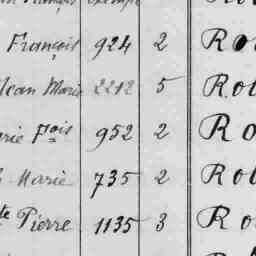 François 924 2 Ro
Jean Marie 2212 5 Rol
rie Fois 952 2 Ro
Marie 735 2 Rol
te Pierre 1135 3 Ro